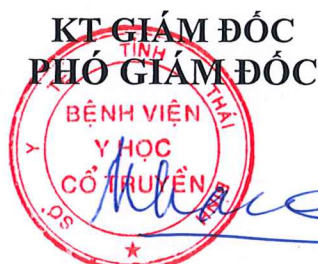 KT GIÁM ĐỐC
PHÓ GIÁM ĐỐC
SỞ Y TẾ TỈNH THÁI
BỆNH VIỆN
Y HỌC
CỔ TRUYỀN